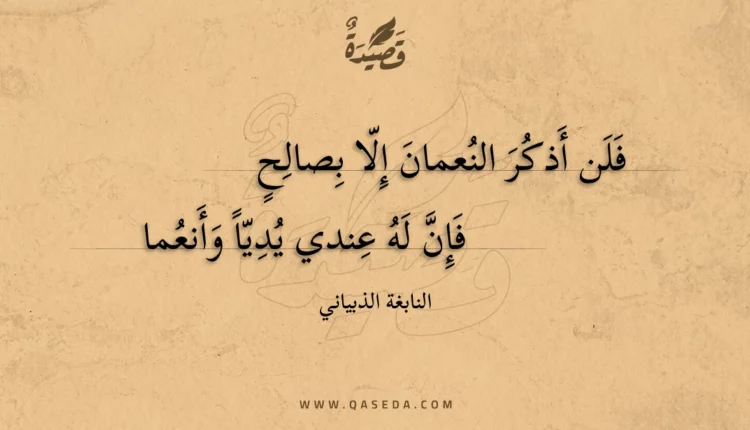 قَصِيْدَةٌ
فَلَن أَذكُرَ النُعمانَ إِلّا بِصالِحٍ
فَإِنَّ لَهُ عِندي يُدِيّاً وَأَنعُما
النابغة الذبياني
WWW.QASEDA.COM